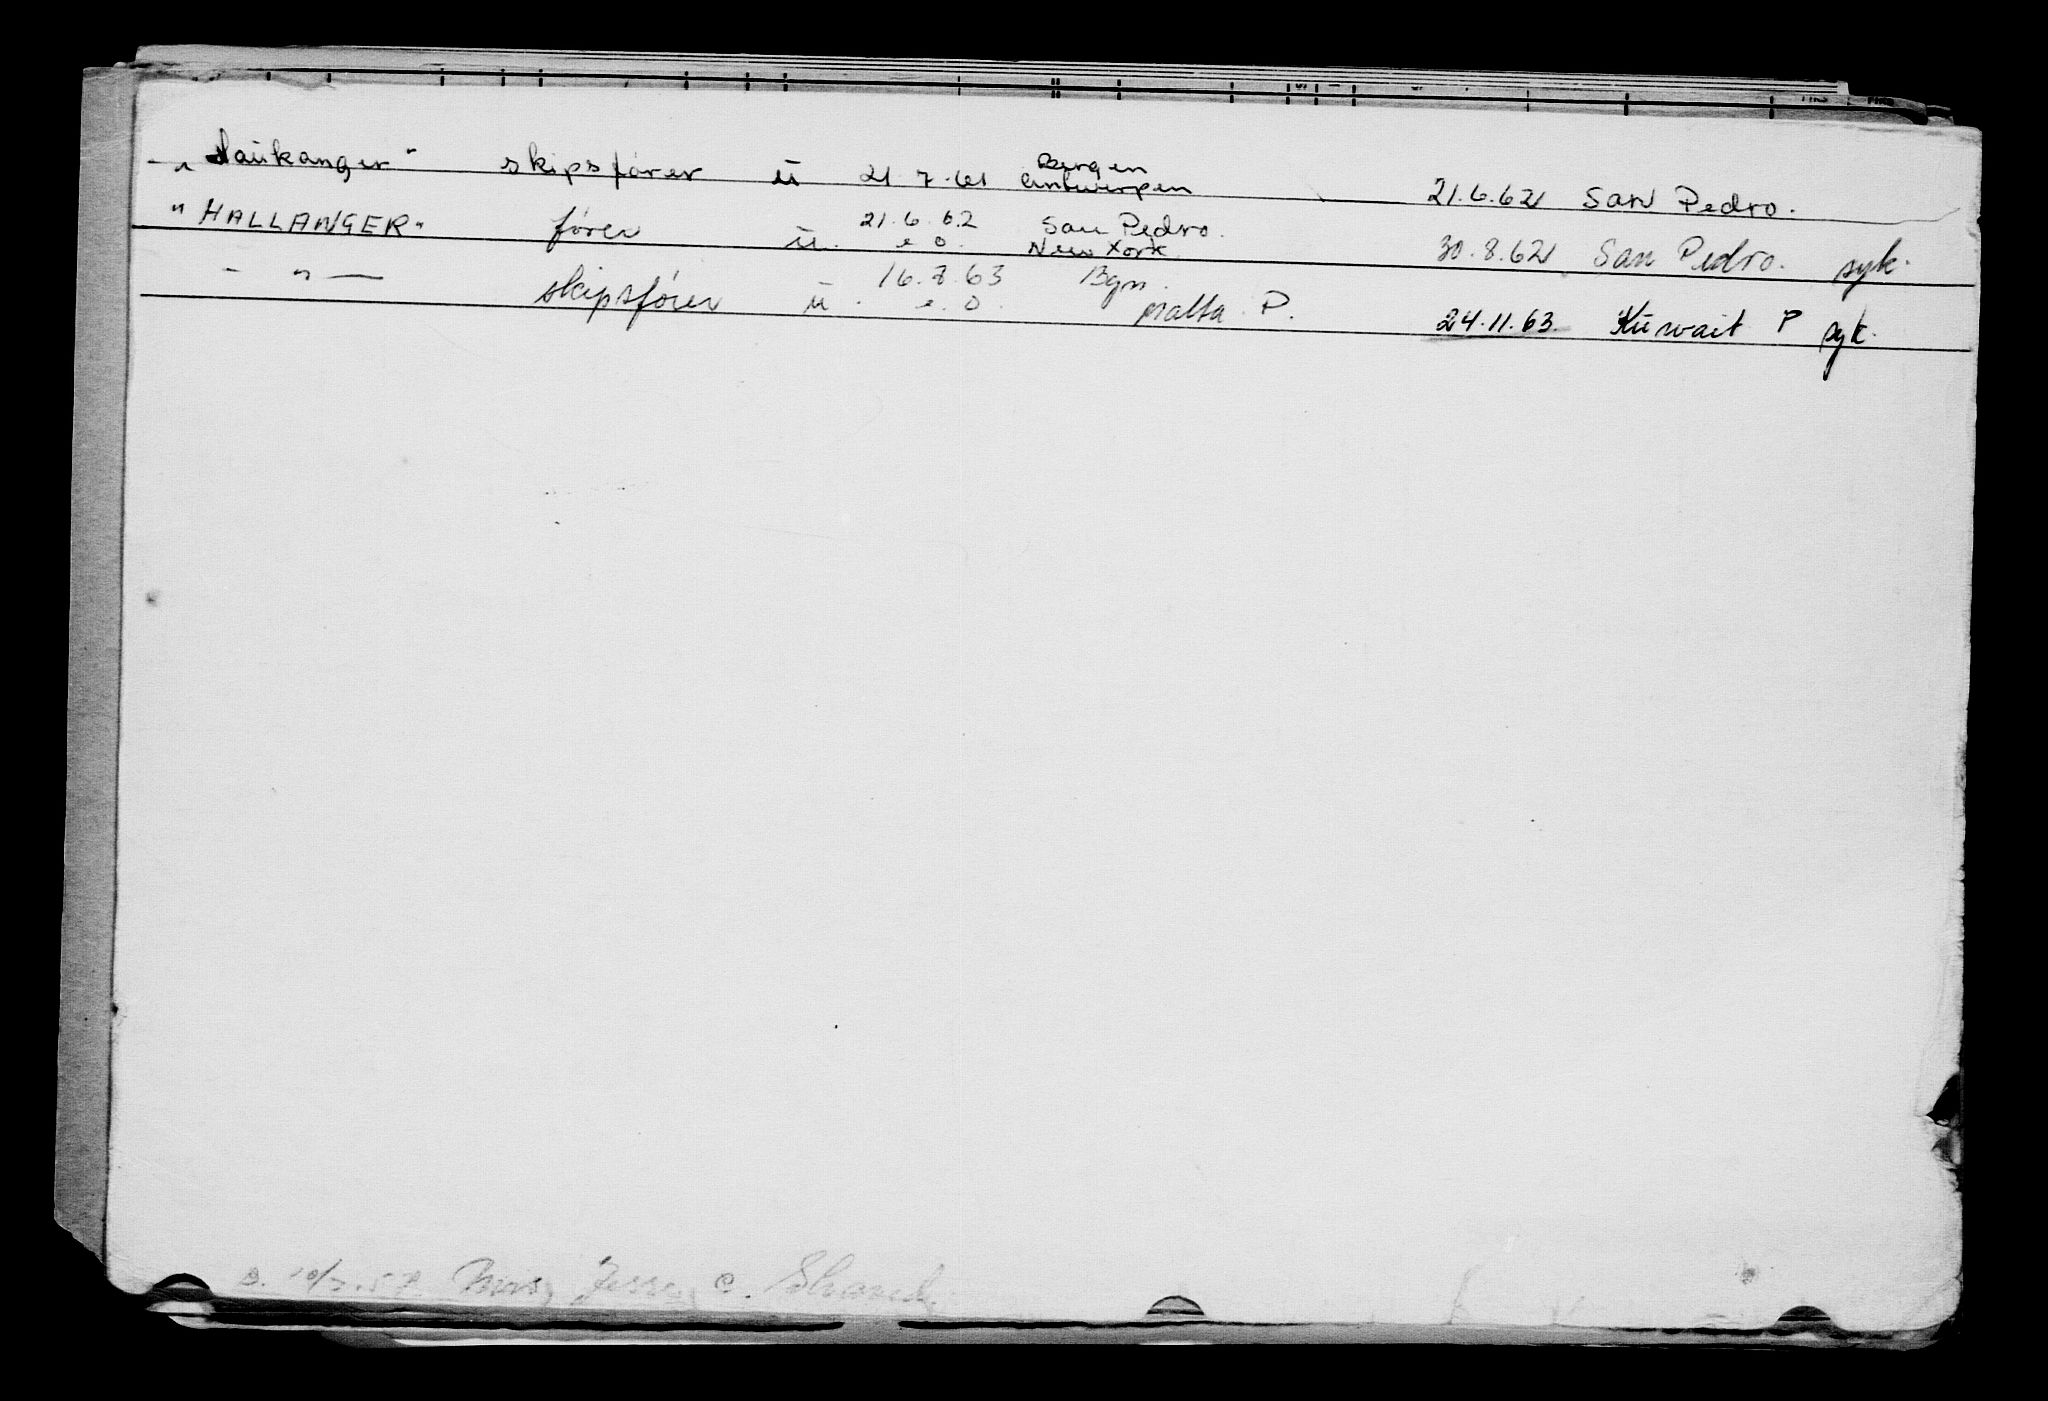 "Haukanger" skipsfører ü 21.7.61 Bergen Antwerpen 21.6.62 San Pedro.
"HALLANGER" fører ü. 21.6.62 e.o. San Pedro. New York 30.8.62 San Pedro. syk.
- " - skipsfører ü. 16.8.63 e.o. Bgn. Malta P. 24.11.63. Kuwait P syk.
Mrs. C.